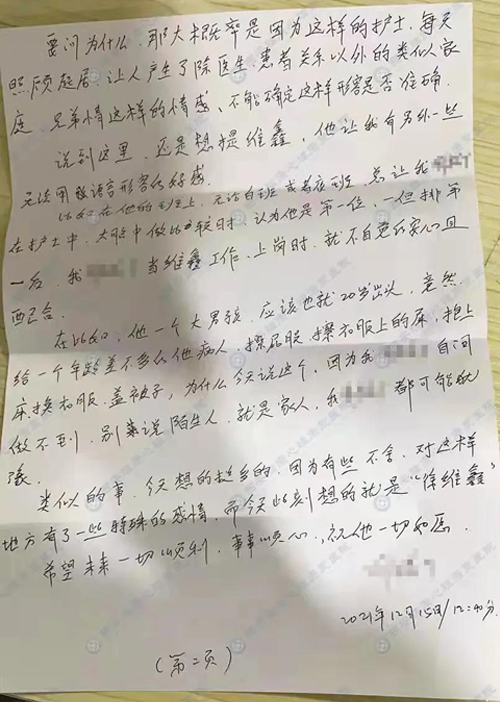 要问为什么，那大概率是因为这样的护士，每天
照顾起居，让人产生了除医生、患者关系以外的类似家
庭、兄弟情这样的情感、不能确定这样形容是否准确.
说到这里，还是想提维鑫，他让我有另外一些
无法用敬语言形容的好感.
比如在他的班上，无论白班或者夜班，总让我
在护士中，大脑中做比较时，认为他是第一位，一但排第
一后，我 当维鑫工作，上岗时，就不自觉的安心且
配合.
在比如，他一个大男孩，应该也就20岁出头，竟然
给一个年龄差不多的他病人，擦屁股，擦衣服上的尿，抱上
床换衣服、盖被子，为什么今天说这个，因为我 自问
做不到，别来说陌生人，就是家人，我 都可能犹
豫.
类似的事，今天想的挺多的，因为有些不舍，对这样
地方有了一些特殊的感情，而今天此刻想的就是“徐维鑫”
希望未来一切顺利，事事顺心，祝他一切如愿.
2021年12月15日/12:40分.
(第二页)